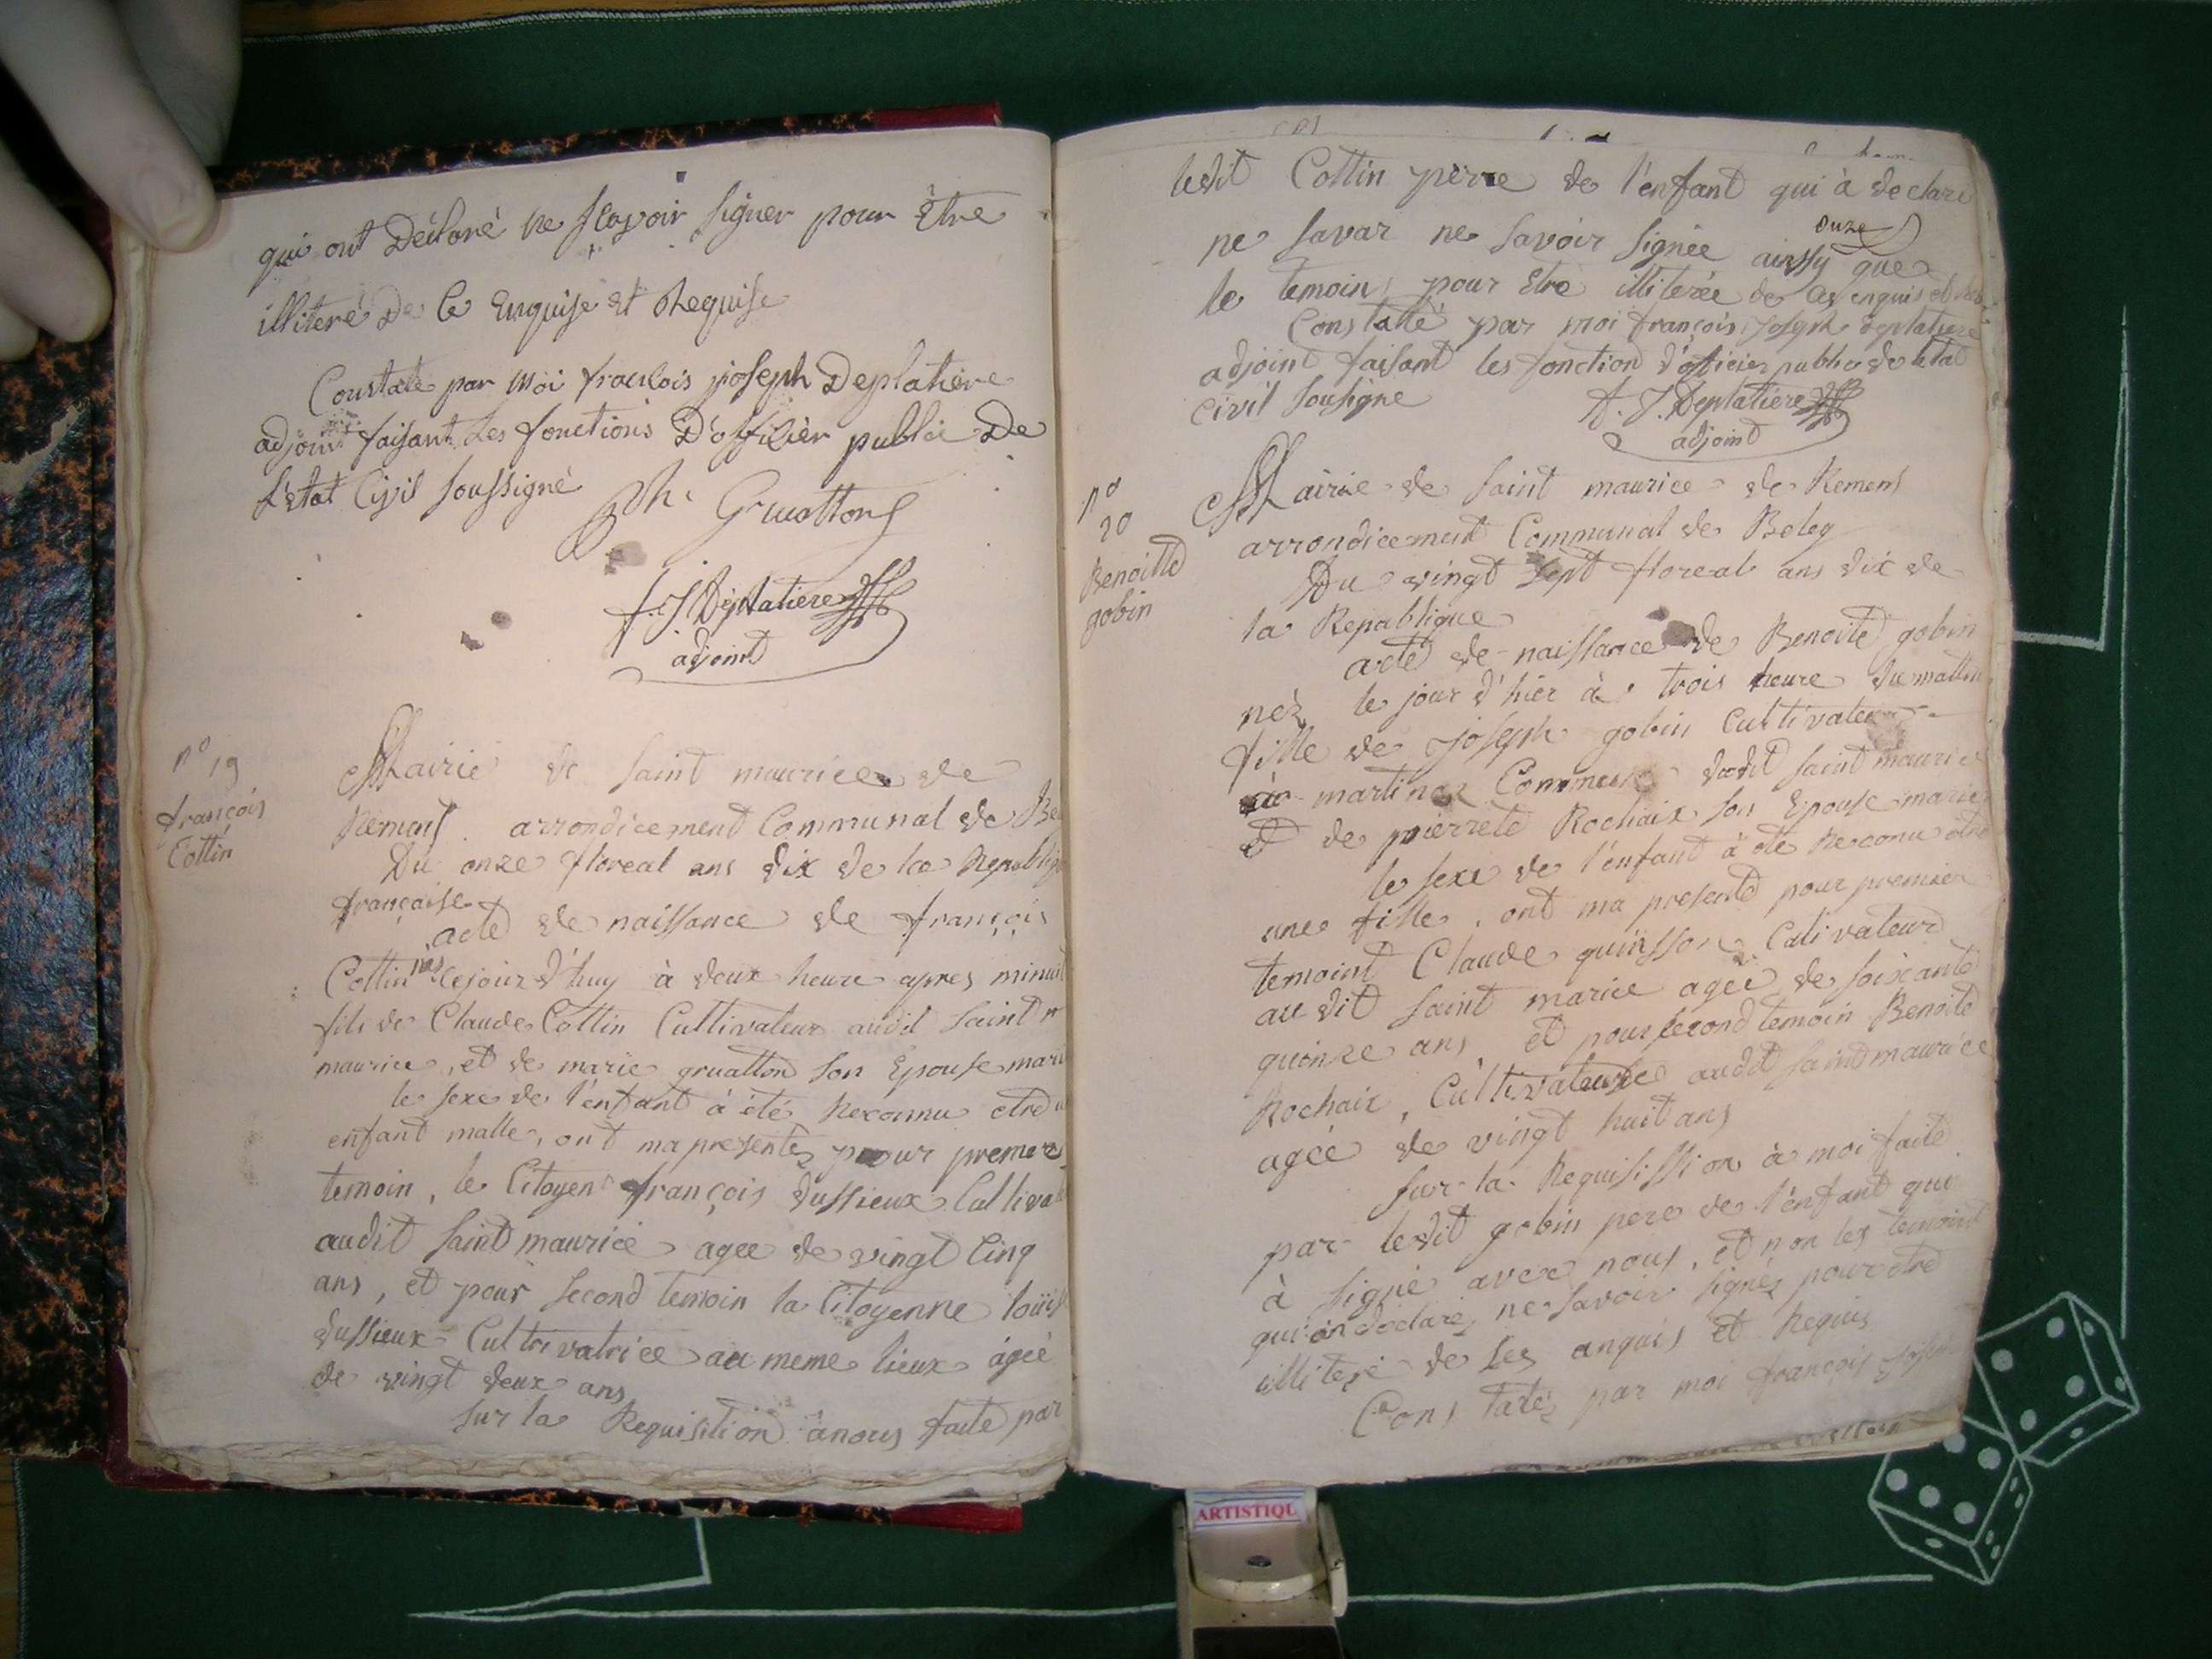 qui ont Déclaré ne sçavoir signer pour Être
illiteré De Ce Enquise Et Requise
Constate par Moi francois joseph Deplatiere
adjoint faisant Les fonctions D'officier public De
L'etat Civil soussigné
Ph. Gruattons
f. J. Deplatiere
adjoint
n° 19
françois
Cottin
Mairie de saint maurice de
Remens arrondicement Communal de Be
Du onze floreal ans dix de la Republiq
française
acte de naissance de françois
Cottin nés lejour d'huy à deux heure apres minuit
fils de Claude Cottin Cultivateur audit saint m
maurice, et de marie gruatton son Epouse mari
le sexe de l'enfant à été Reconnu etre u
enfant malle, ont ma presentes pour premer
temoin, le Citoyen françois dussieux Cultivat
audit saint maurice agee de vingt Cinq
ans, et pour second temoin la Citoyenne louise
dussieux Cultivatrice au meme lieux ágée
de vingt deux ans
sur la Requisition ànous faite par
ledit Cottin perre de l'enfant qui à declaré
ne savar ne savoir signée ainssy que
onze
le temoins pour Etre illiterée de Ces enquis et
Constatté par moi françois Joseph deplatiere
adjoint faisant les fonction d'officier public de letat
civil sousigne
f. J. Deplatiere
adjoint
n°
20
Benoitte
gobin
Mairie de saint maurice de Remens
arrondicement Communal de Beley
Du vingt sept floreal ans dix de
la Republique
acte de naissance de Benoite gobin
néz le jour d'hier à trois heure du mattin
fille de joseph gobin Cultivateur
à martinaz Commune dudit saint maurice
et de pierrete Rochaix son Epouse marie
le sexe de l'enfant à ete Reconu etre
une fille, ont ma presente pour premier
temoint Claude quinsson Cultivateur
au dit saint marice agee de soixante
quinze ans, et pour second temoin Benoite
Rochaix, Cultivateure audit saint maurice
agée de vingt huit ans
sur la Requisission à moi faite
par ledit gobin pere de l'enfant qui
à signé avec nous, et non les temoint
qui on declarez ne savoir signéz pour etre
illiteré de Ses anquis et Requis
Constatéz par moi françois Joseph
ARTISTIQU